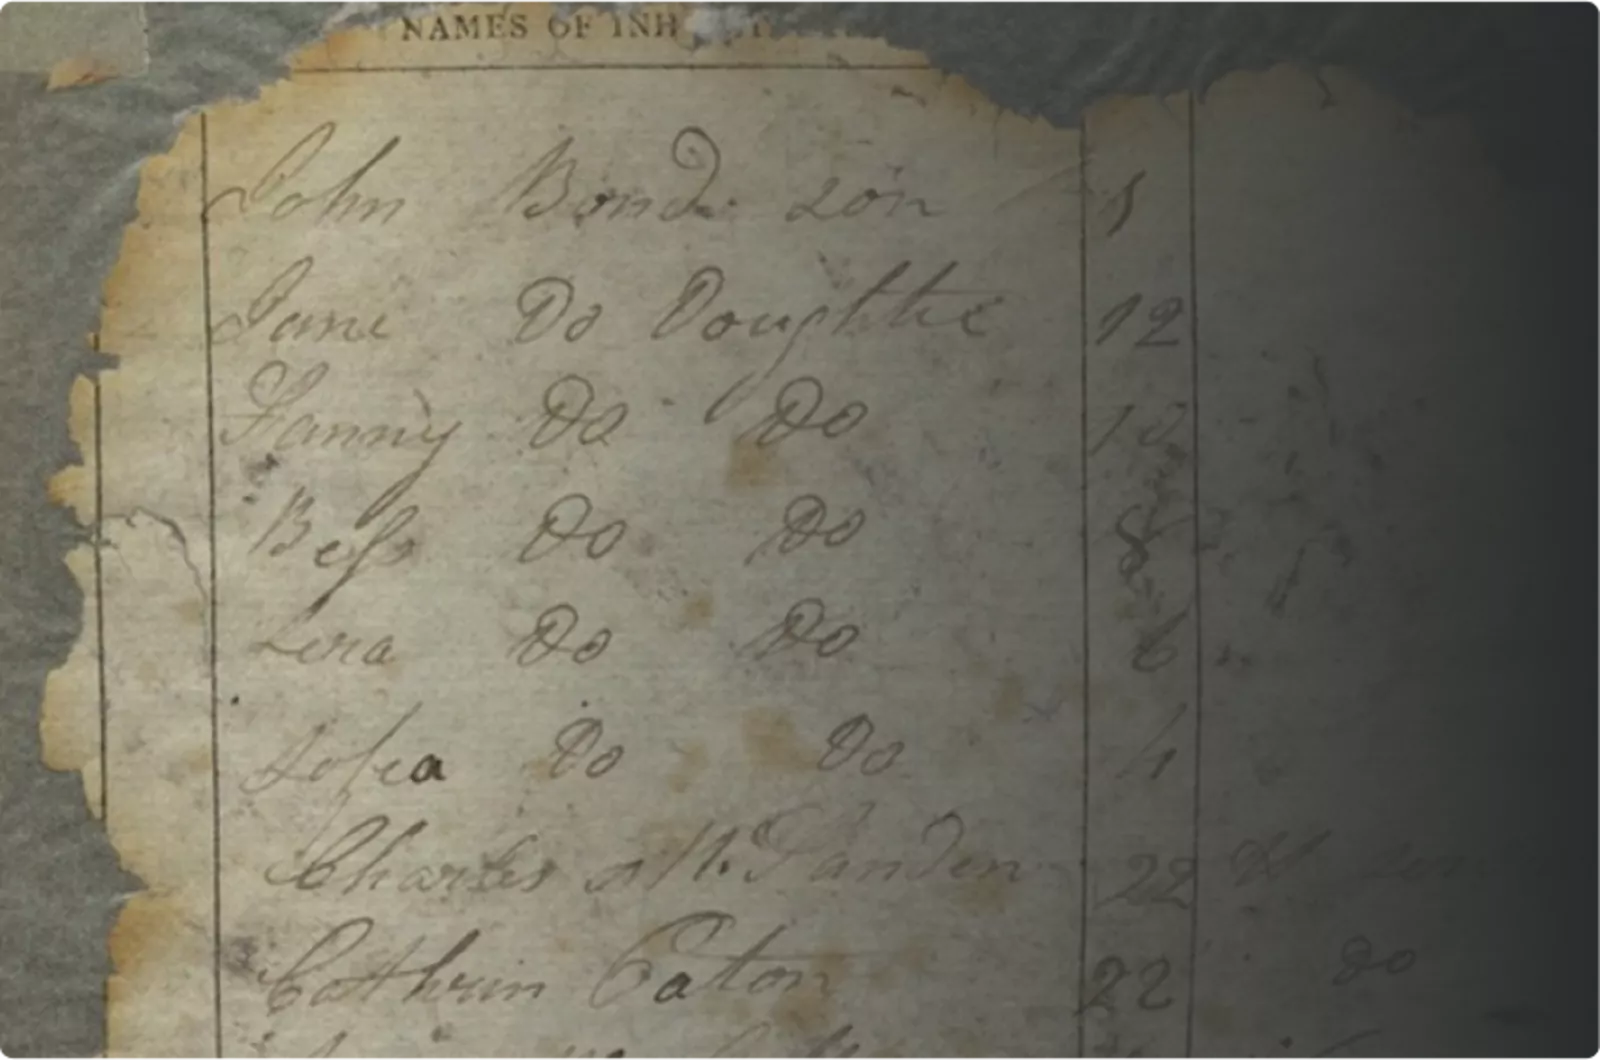 NAMES OF INH
John Bond son
Jane Do Doughtte 12
Fanny Do Do 10
Bess Do Do 8
Do Do 6
Sofia Do Do 4
Charles 22
Cathrin Eaton 22 do